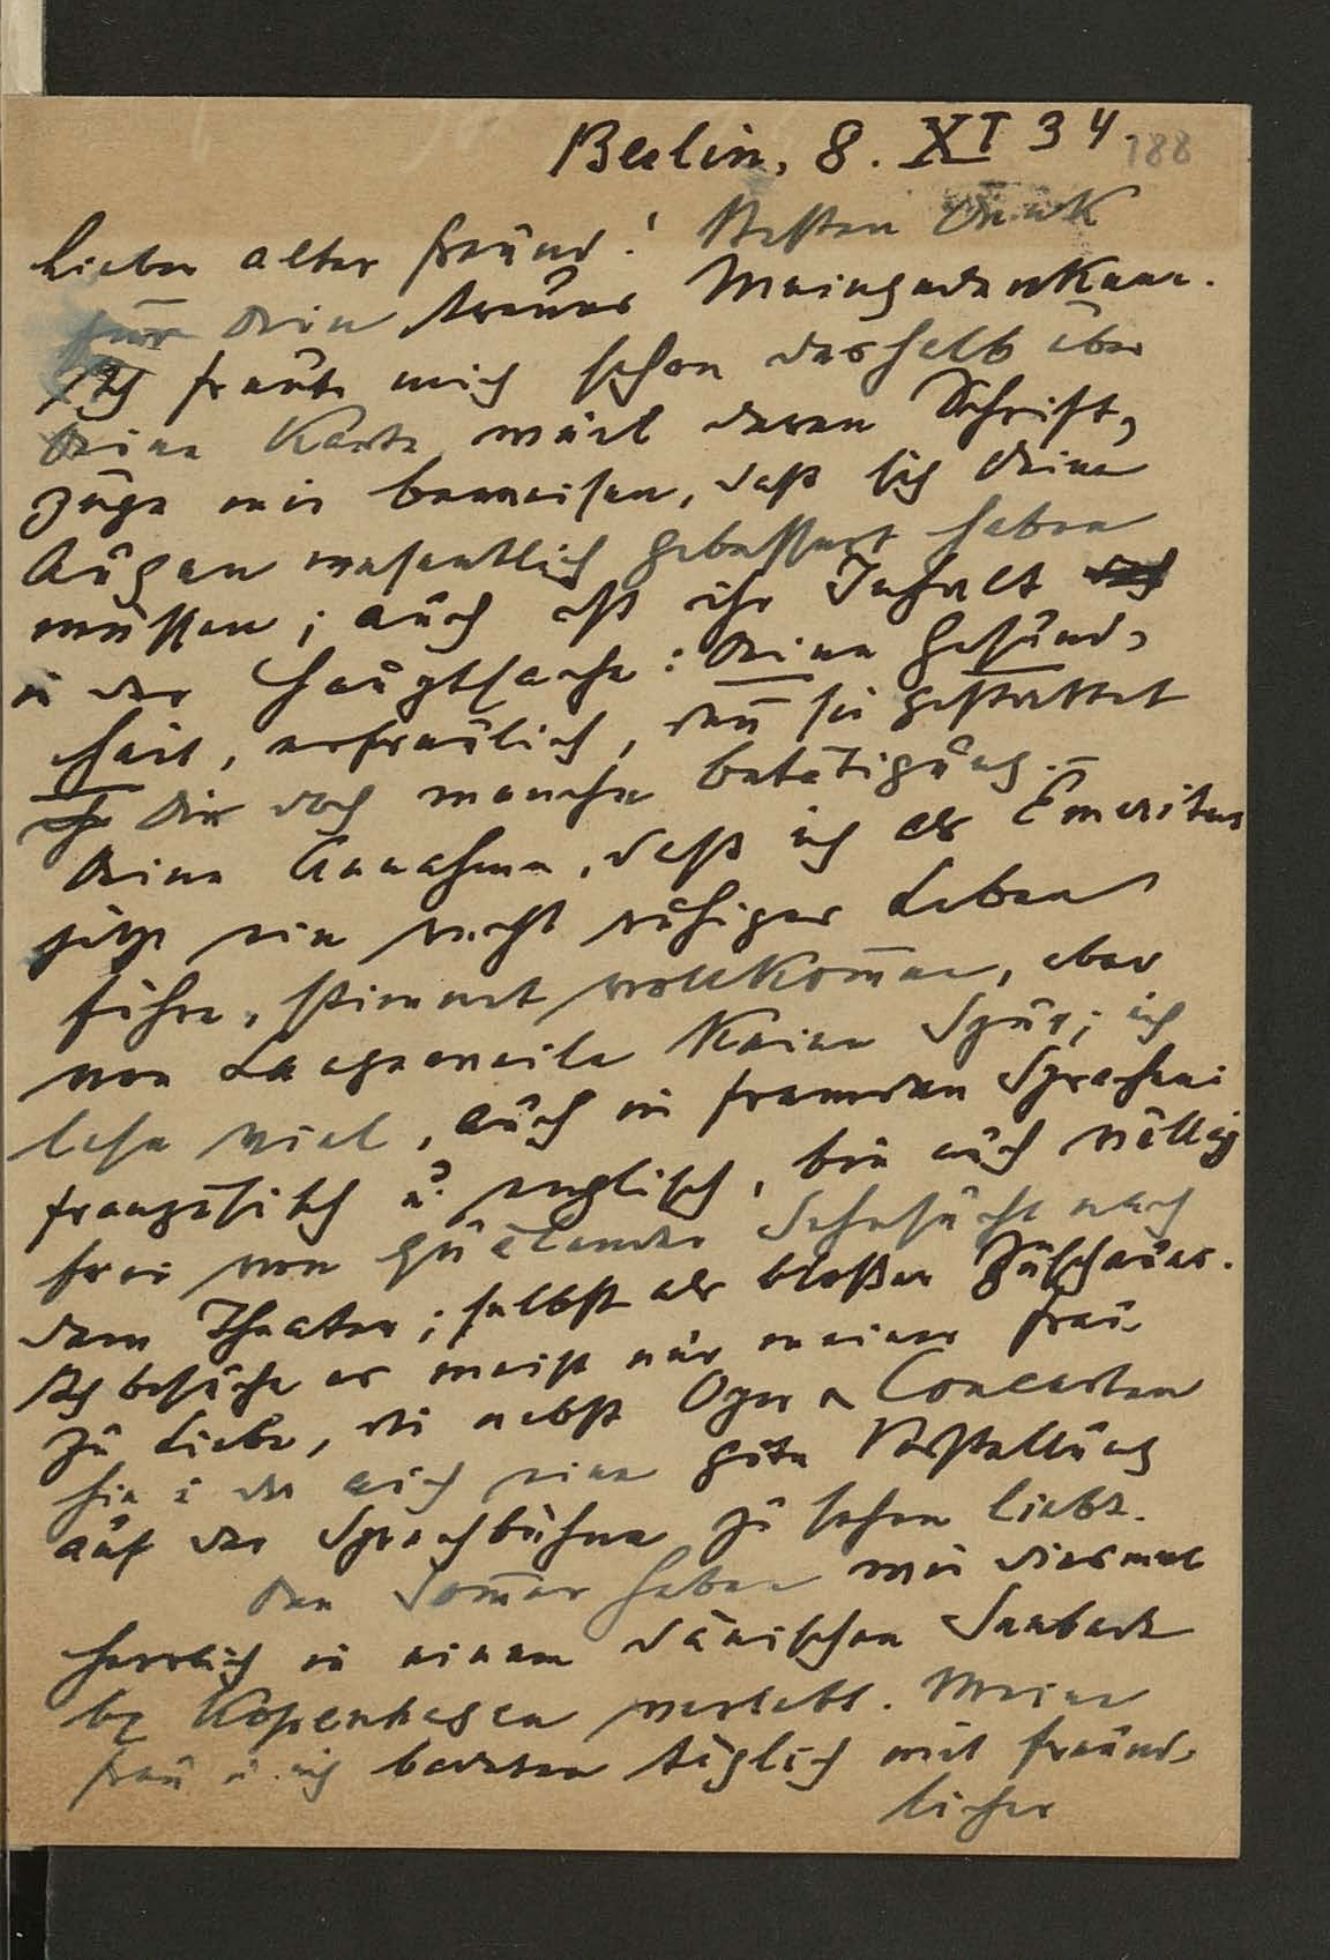 Berlin, 8. XI 34.
188
Lieber alter Freund! Besten Dank
für Dein treues Meingedenken.
Ich freute mich schon deshalb über
Deine Karte weil deren Schrift-
züge mir beweisen, daß sich Deine
Augen wesentlich gebessert haben
müssen; auch ist ihr Inhalt
in der Hauptsache: Deine Gesund-
heit, erfreulich, den̄ sie gestattet
Dir doch manche Betätigung. –
Deine Annahme, daß ich als Emeritus
jetzt ein recht ruhiges Leben
führe, stimmt vollkom̄en, aber
von Langeweile keine Spur; ich
lese viel, auch in fremden Sprachen:
französisch u. englisch, bin auch völlig
frei von quälender Sehnsucht nach
dem Theater; selbst als bloßer Zuschauer.
Ich besuche es meist nur meiner Frau
zu Liebe, die nebst Oper u Concerten
hie u da auch eine gute Vorstellung
auf der Sprechbühne zu sehen liebt.
Den Som̄er haben wir diesmal
herrlich in einem dänischen Seebade
bei Kopenhagen verlebt. Meine
Frau u. ich badeten täglich mit freund-
licher